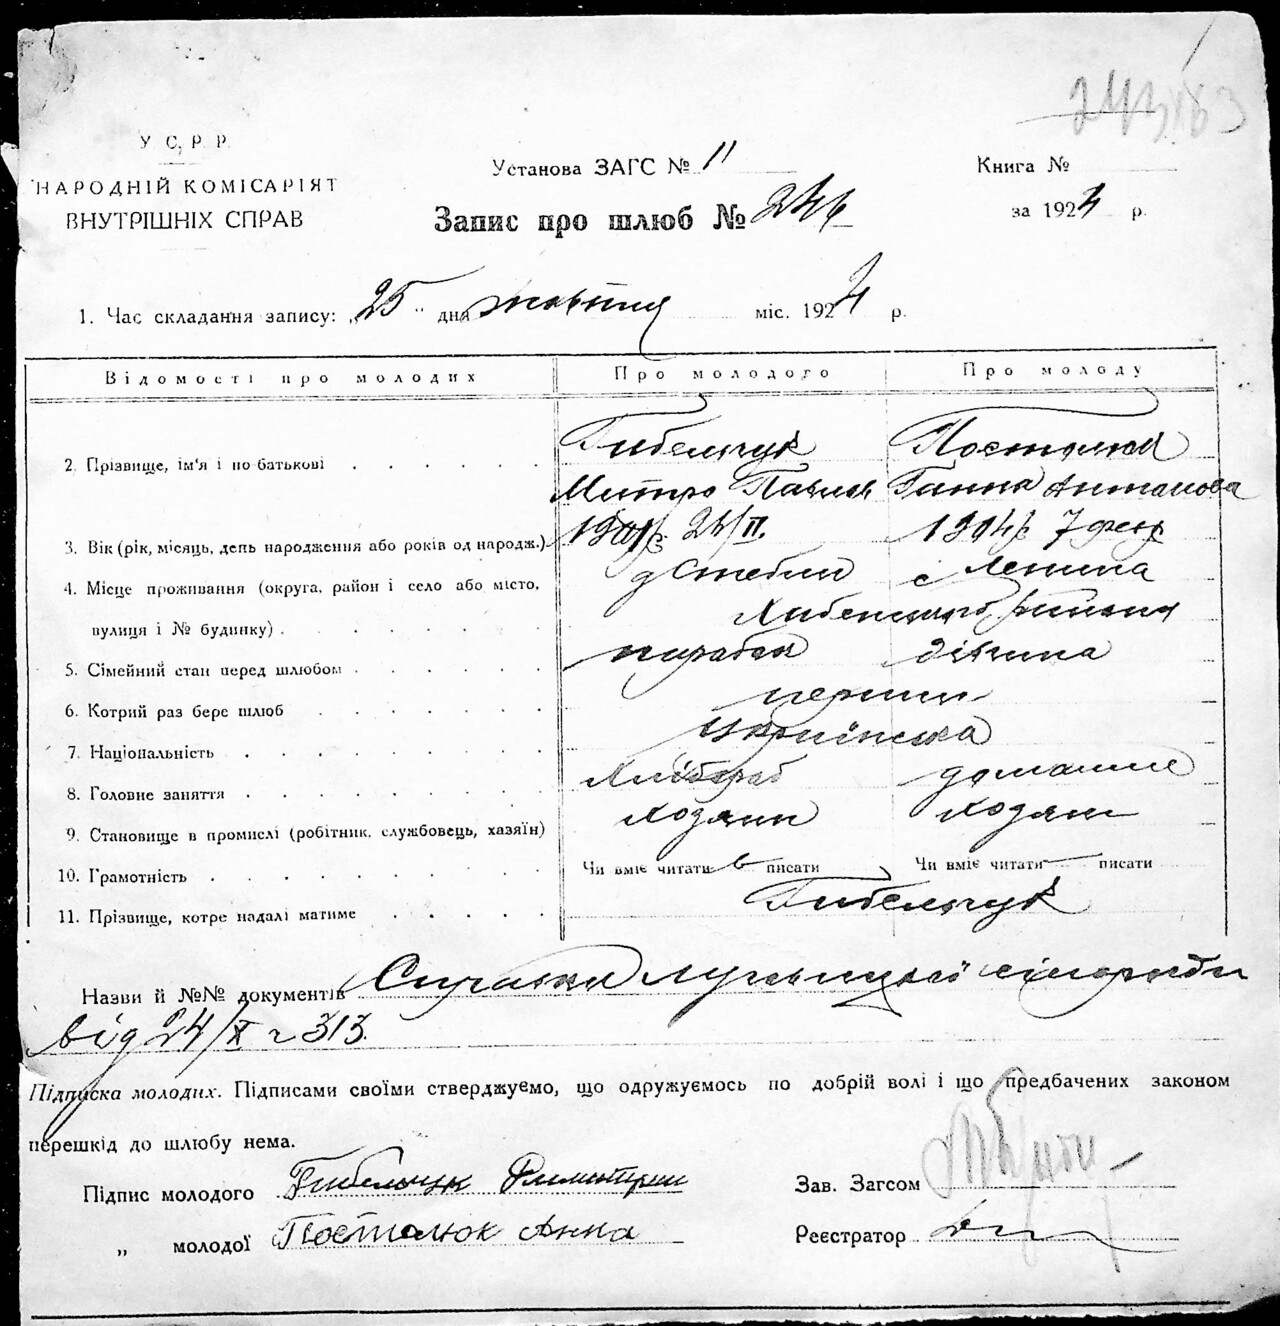 У С, Р. Р.
НАРОДНІЙ КОМІСАРІЯТ
ВНУТРІШНІХ СПРАВ
Установа ЗАГС № 11
Запис про шлюб № 246
Книга №
за 1924 р.
1. Час складання запису: „25" дня жовтня міс. 1924 р.
Відомості про молодих Про молодого Про молоду
Гибельчук Постолюк
2. Прізвище, ім'я і по батькові
Митро Павлов Ганна Антонова
3. Вік (рік, місяць, день народження або років од народж.) 24/II. 1904 р 7
4. Місце проживання (округа, район і село або місто, с
вулиця і № будинку) района
5. Сімейний стан перед шлюбом парубок дівчина
6. Котрий раз бере шлюб перший
7. Національність Українська
8. Головне заняття Хлібороб домашнє
9. Становище в промислі (робітник, службовець, хазяїн) Хозяин
10. Грамотність Чи вміє читати писати Чи вміє читати — писати
11. Прізвище, котре надалі матиме Гибельчук
Назви й №№ документів Справка сільради
від 24/X ч 313.
Підписка молодих. Підписами своїми стверджуємо, що одружуємось по добрій волі і що предбачених законом
перешкід до шлюбу нема.
Підпис молодого Гибельчук
Зав. Загсом
„ молодої Постолюк Анна
Реєстратор